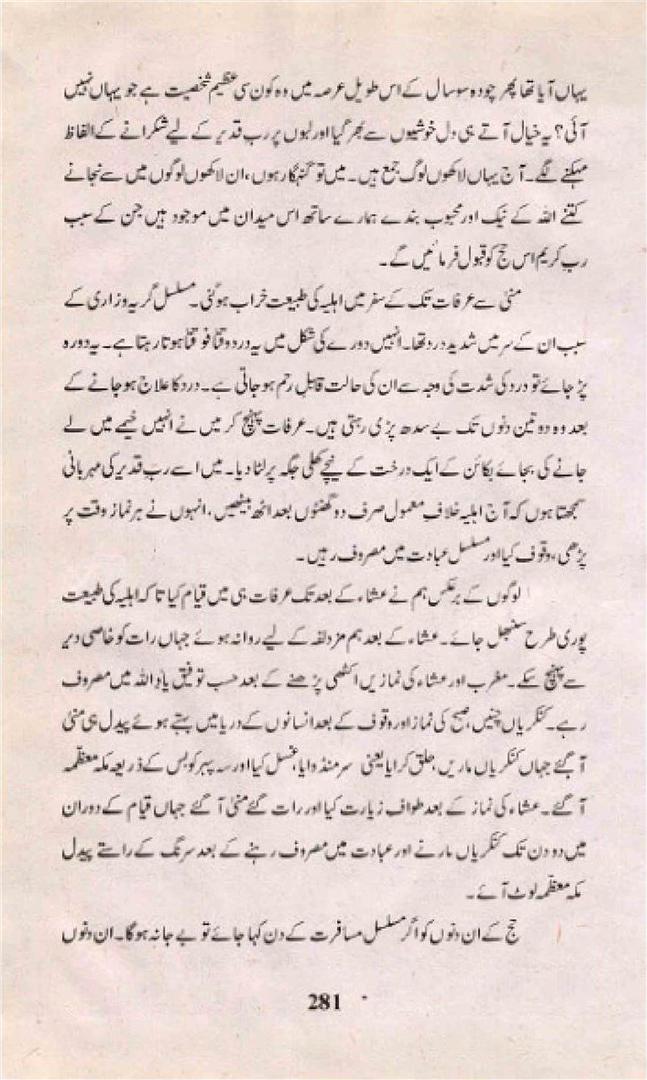 یہاں آیا تھا پھر چودہ سو سال کے اس طویل عرصہ میں وہ کون سی عظیم شخصیت ہے جو یہاں نہیں
آئی؟ یہ خیال آتے ہی دل خوشیوں سے بھر گیا اور لبوں پر رب قدیر کے لیے شکرانے کے الفاظ
مہکنے لگے۔ آج یہاں لاکھوں لوگ جمع ہیں۔ میں تو گنہگار ہوں، ان لاکھوں لوگوں میں سے نجانے
کتنے اللہ کے نیک اور محبوب بندے ہمارے ساتھ اس میدان میں موجود ہیں جن کے سبب
رب کریم اس حج کو قبول فرمائیں گے۔
منیٰ سے عرفات تک کے سفر میں اہلیہ کی طبیعت خراب ہو گئی۔ مسلسل گریہ وزاری کے
سبب ان کے سر میں شدید درد تھا۔ انہیں دورے کی شکل میں یہ درد وقتاً فوقتاً ہوتا رہتا ہے۔ یہ دورہ
پڑ جائے تو درد کی شدت کی وجہ سے ان کی حالت قابلِ رحم ہو جاتی ہے۔ درد کا علاج ہو جانے کے
بعد وہ دو تین دنوں تک بے سدھ پڑی رہتی ہیں۔ عرفات پہنچ کر میں نے انہیں خیمے میں لے
جانے کی بجائے بکائن کے ایک درخت کے نیچے کھلی جگہ پر لٹا دیا۔ میں اسے ربِ قدیر کی مہربانی
سمجھتا ہوں کہ آج اہلیہ خلافِ معمول صرف دو گھنٹوں بعد اٹھ بیٹھیں، انہوں نے ہر نماز وقت پر
پڑھی، وقوف کیا اور مسلسل عبادت میں مصروف رہیں۔
لوگوں کے برعکس ہم نے عشاء کے بعد تک عرفات ہی میں قیام کیا تاکہ اہلیہ کی طبیعت
پوری طرح سنبھل جائے۔ عشاء کے بعد ہم مزدلفہ کے لیے روانہ ہوئے جہاں رات کو خاصی دیر
سے پہنچ سکے۔ مغرب اور عشاء کی نمازیں اکٹھی پڑھنے کے بعد حسب توفیق یادِ اللہ میں مصروف
رہے۔ کنکریاں چنیں، صبح کی نماز اور وقوف کے بعد انسانوں کے دریا میں بہتے ہوئے پیدل ہی منیٰ
آ گئے جہاں کنکریاں ماریں، حلق کرایا یعنی سر منڈوایا، غسل کیا اور سہ پہر کو بس کے ذریعہ مکہ معظمہ
آ گئے۔ عشاء کی نماز کے بعد طواف زیارت کیا اور رات گئے منیٰ آ گئے جہاں قیام کے دوران
میں دو دن تک کنکریاں مارنے اور عبادت میں مصروف رہنے کے بعد سرنگ کے راستے پیدل
مکہ معظمہ لوٹ آئے۔
حج کے ان دنوں کو اگر مسلسل مسافرت کے دن کہا جائے تو بے جا نہ ہوگا۔ ان دنوں
281